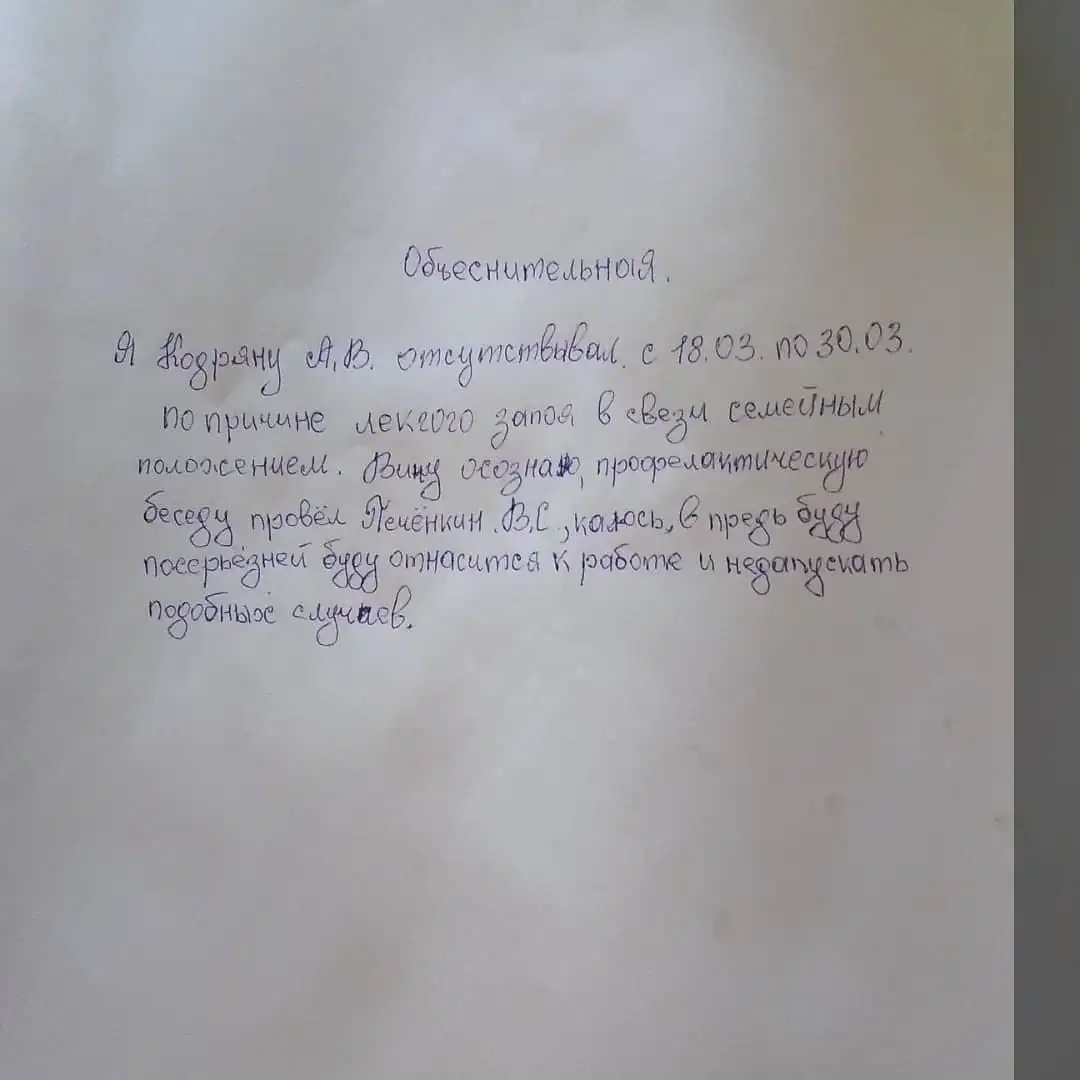 Объеснительныя.
Я Кодряну А.В. отсутствывал. с 18.03. по 30.03.
по причине лекгого запоя в свези семейным
положением. Вину осознаю, профелактическую
беседу провёл Печёнкин .В.С., каюсь, в предь буду
посерьёзней буду отнасится к работе и недапускать
подобных случаев.